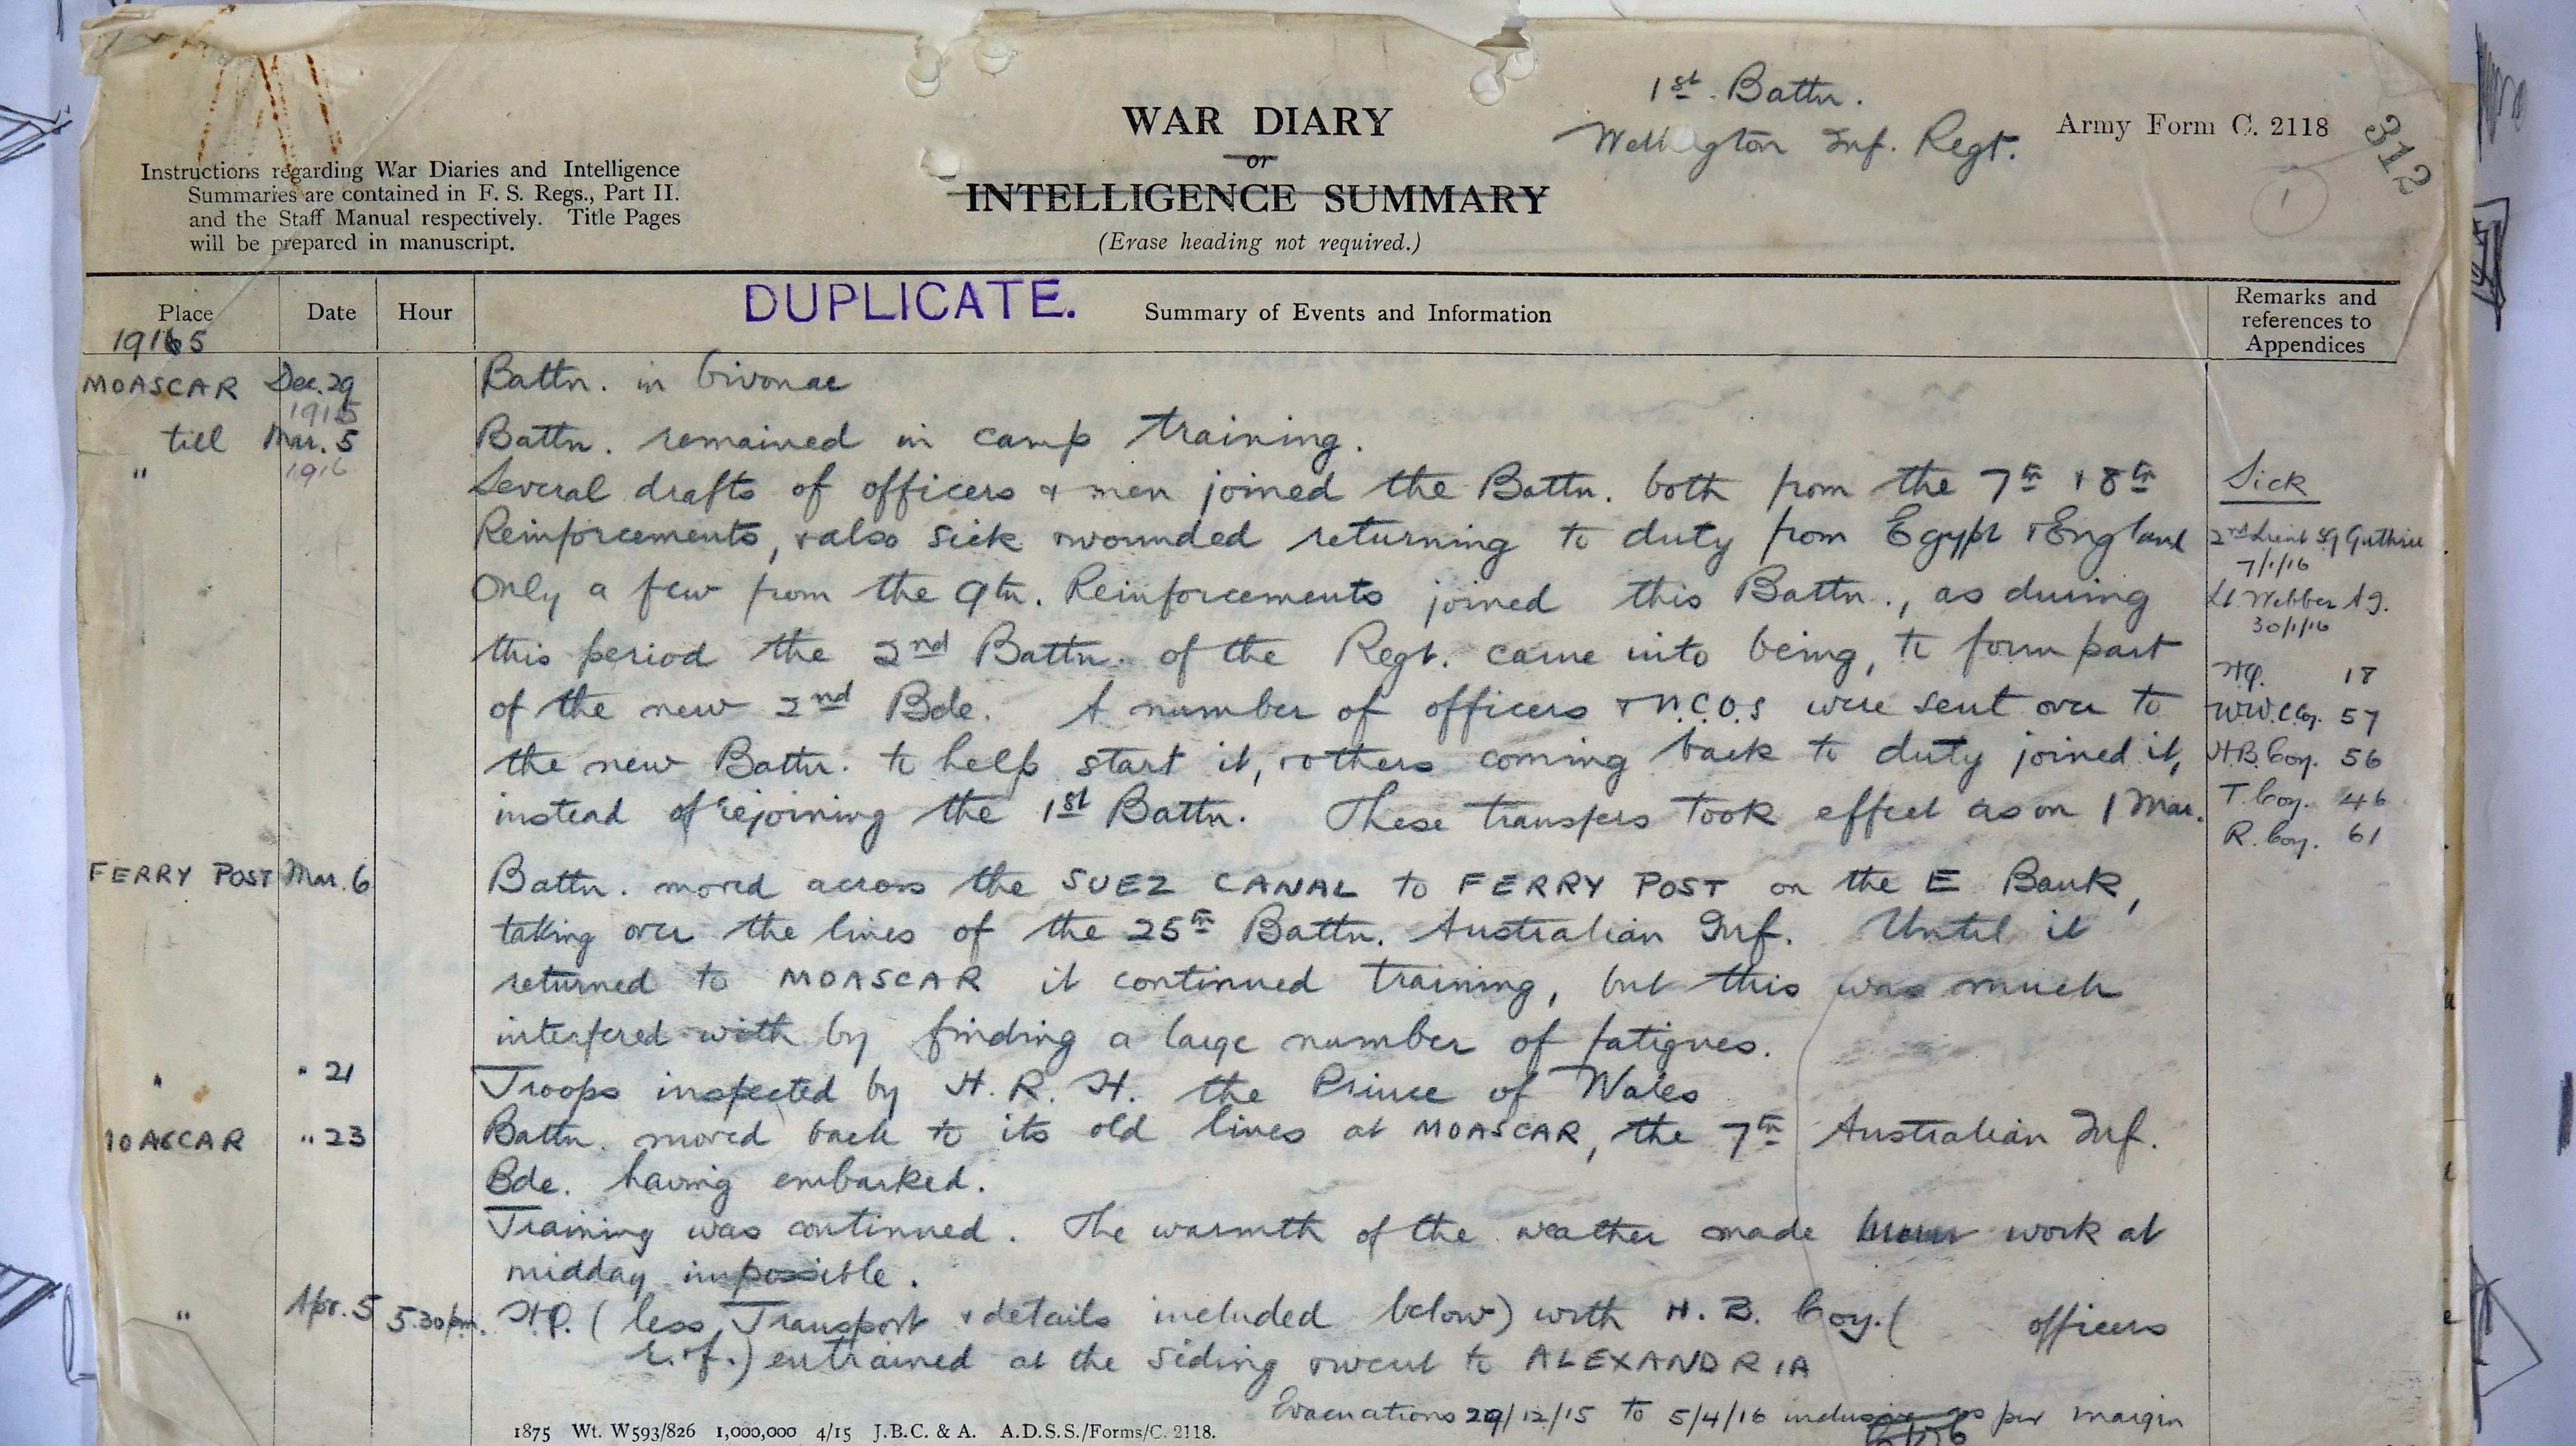 1st. Battn.
Wellington Inf. Regt.
Army Form C. 2118
312
1
WAR DIARY
or
INTELLIGENCE SUMMARY
(Erase heading not required.)
Instructions regarding War Diaries and Intelligence
Summaries are contained in F. S. Regs., Part II.
and the Staff Manual respectively. Title Pages
will be prepared in manuscript.
Place Date Hour DUPLICATE. Summary of Events and Information Remarks and
references to
Appendices
1915
MOASCAR Dec. 29 Battn. in bivouac
1915
till Mar. 5 Battn. remained in camp training.
" 1916 Several drafts of officers & men joined the Battn. both from the 7th & 8th Sick
Reinforcements, & also sick & wounded returning to duty from Egypt & England 2nd Lieut Guthrie
7/1/16
Only a few from the 9th. Reinforcements joined this Battn., as during Lt. Webber A.J.
30/1/16
this period the 2nd Battn. of the Regt. came into being, to form part HQ. 18
of the new 2nd Bde. A number of officers & N.C.O.s were sent over to W.W.C. Coy. 57
the new Battn. to help start it, & others coming back to duty joined it, H.B. Coy. 56
instead of rejoining the 1st Battn. These transfers took effect as on 1 Mar. T. Coy. 46
R. Coy. 61
FERRY POST Mar. 6 Battn. moved across the SUEZ CANAL to FERRY POST on the E Bank,
taking over the lines of the 25th Battn. Australian Inf. Until it
returned to MOASCAR it continued training, but this was much
interfered with by finding a large number of fatigues.
" " 21 Troops inspected by H. R. H. the Prince of Wales
MOASCAR " 23 Battn. moved back to its old lines at MOASCAR, the 7th Australian Inf.
Bde. having embarked.
Training was continued. The warmth of the weather made work at
midday impossible.
" Apr. 5 5.30 pm. H.Q. (less Transport & details included below) with H. B. Coy. ( officers
r. & f.) entrained at the siding & went to ALEXANDRIA
Evacuations 29/12/15 to 5/4/16 inclusive as per margin
1875 Wt. W593/826 1,000,000 4/15 J.B.C. & A. A.D.S.S./Forms/C. 2118.